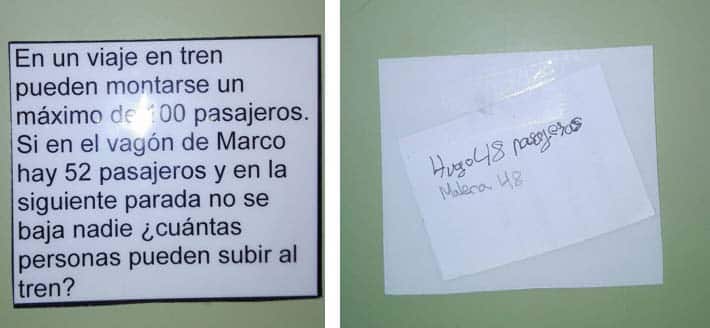 En un viaje en tren
pueden montarse un
máximo de 100 pasajeros.
Si en el vagón de Marco
hay 52 pasajeros y en la
siguiente parada no se
baja nadie ¿cuántas
personas pueden subir al
tren?
Hugo 48 pasajeros
Malena 48